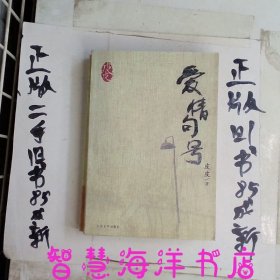 正版二手旧书85成新
爱情句号
皮皮 著
正版旧书85成新
智慧海洋书店